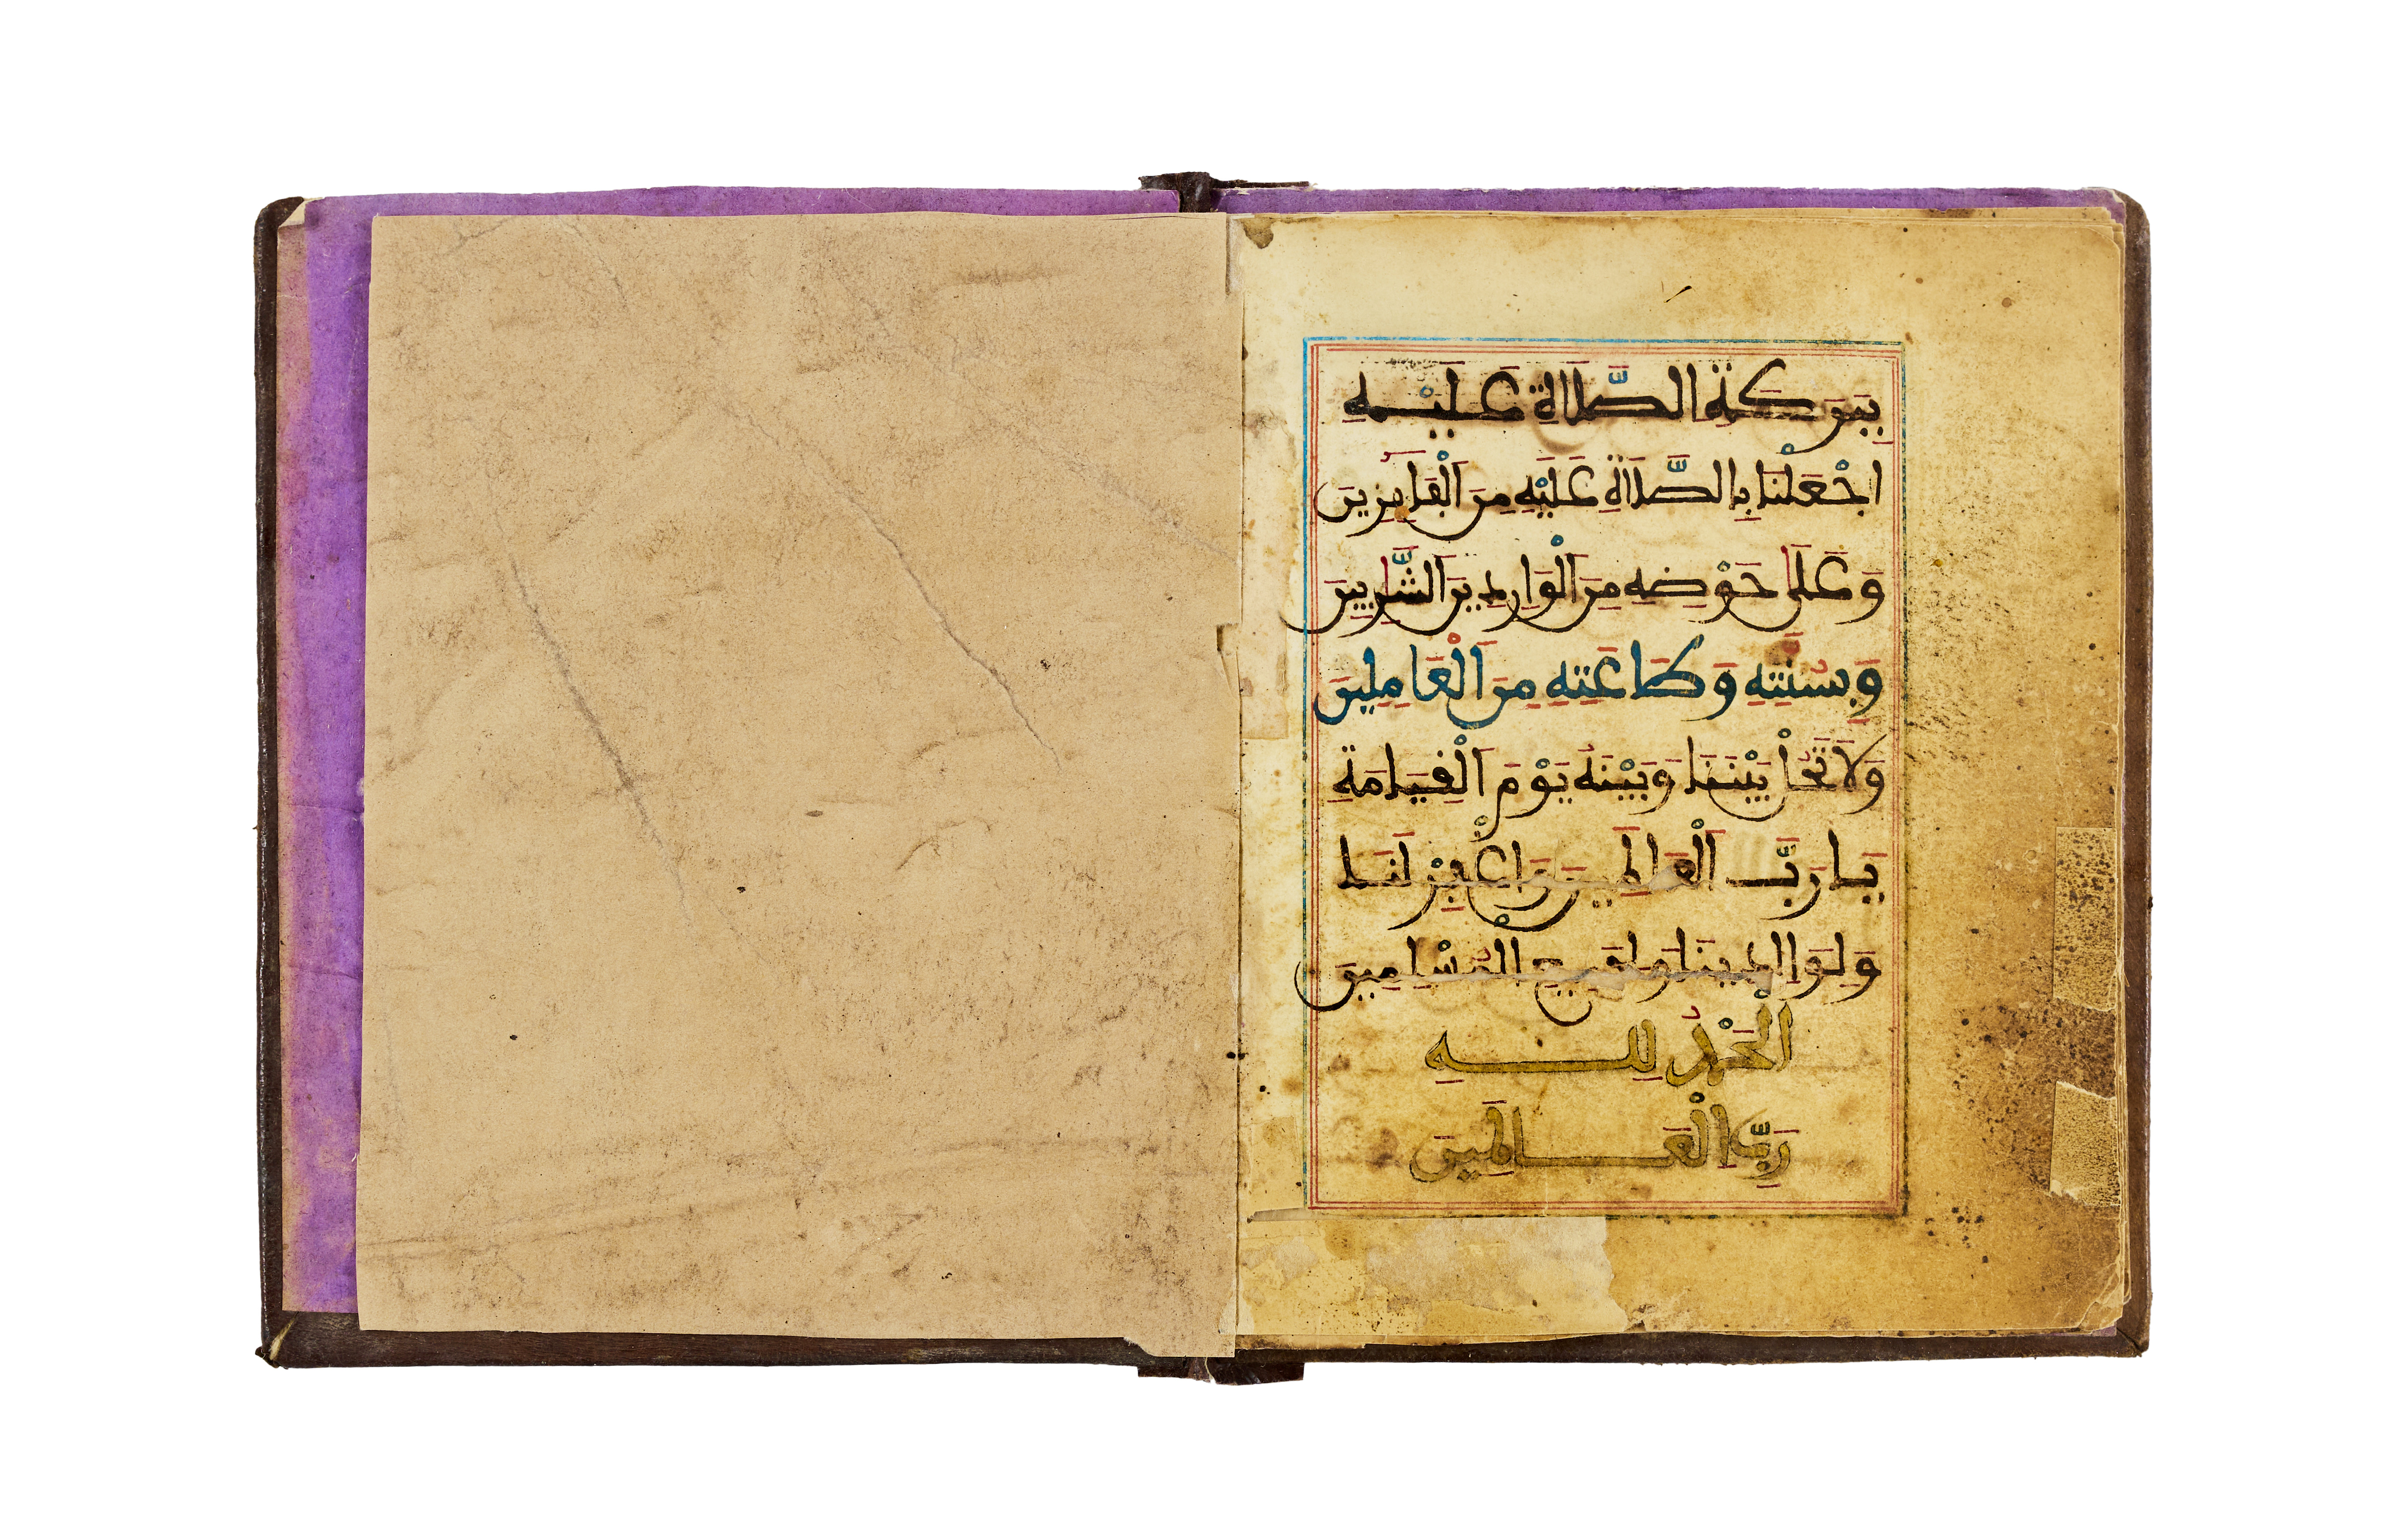 بِبَرَكَةِ الصَّلَاةِ عَلَيْهِ
اجْعَلْنَا بِالصَّلَاةِ عَلَيْهِ مِنَ الْفَايِزِينَ
وَعَلَى حَوْضِهِ مِنَ الْوَارِدِينَ الشَّارِبِينَ
وَبِسُنَّتِهِ وَطَاعَتِهِ مِنَ الْعَامِلِينَ
وَلَا تَحُلْ بَيْنَنَا وَبَيْنَهُ يَوْمَ الْقِيَامَةِ
يَا رَبَّ الْعَالَمِينَ وَاغْفِرْ لَنَا
وَلِوَالِدِينَا وَلِجَمِيعِ الْمُسْلِمِينَ
الْحَمْدُ لِلهِ
رَبِّ الْعَالَمِينَ